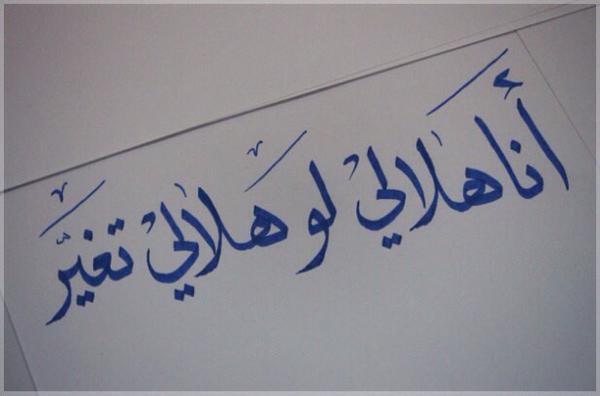 أنا هلالي لو هلالي تغيَّر